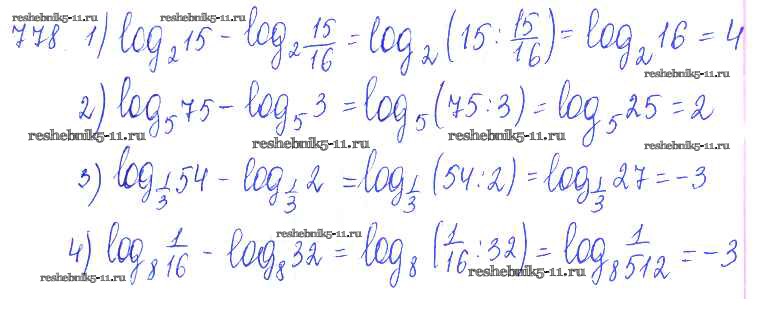 reshebnik5-11.ru reshebnik5-11.ru
778 1) log₂15 - log₂ 15/16 = log₂(15 : 15/16) = log₂16 = 4
reshebnik5-11.ru
2) log₅75 - log₅3 = log₅(75:3) = log₅25 = 2
reshebnik5-11.ru reshebnik5-11.ru reshebnik5-11.ru reshebnik5-11.ru
3) log_1/3 54 - log_1/3 2 = log_1/3 (54:2) = log_1/3 27 = -3
reshebnik5-11.ru reshebnik5-11.ru
4) log₈ 1/16 - log₈32 = log₈(1/16 : 32) = log₈ 1/512 = -3
reshebnik5-11.ru reshebnik5-11.ru